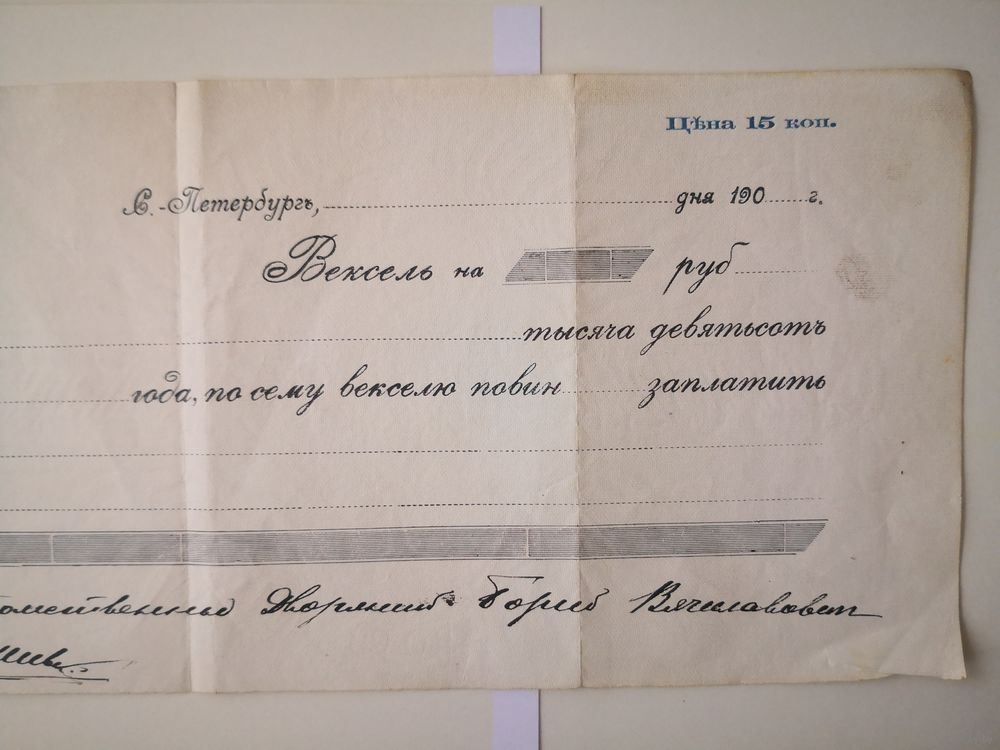 Цѣна 15 коп.
С.-Петербургъ, дня 190 г.
Вексель на руб
тысяча девятьсотъ
года, по сему векселю повин заплатить
омственный Дворянинъ Борисъ Вячеславович